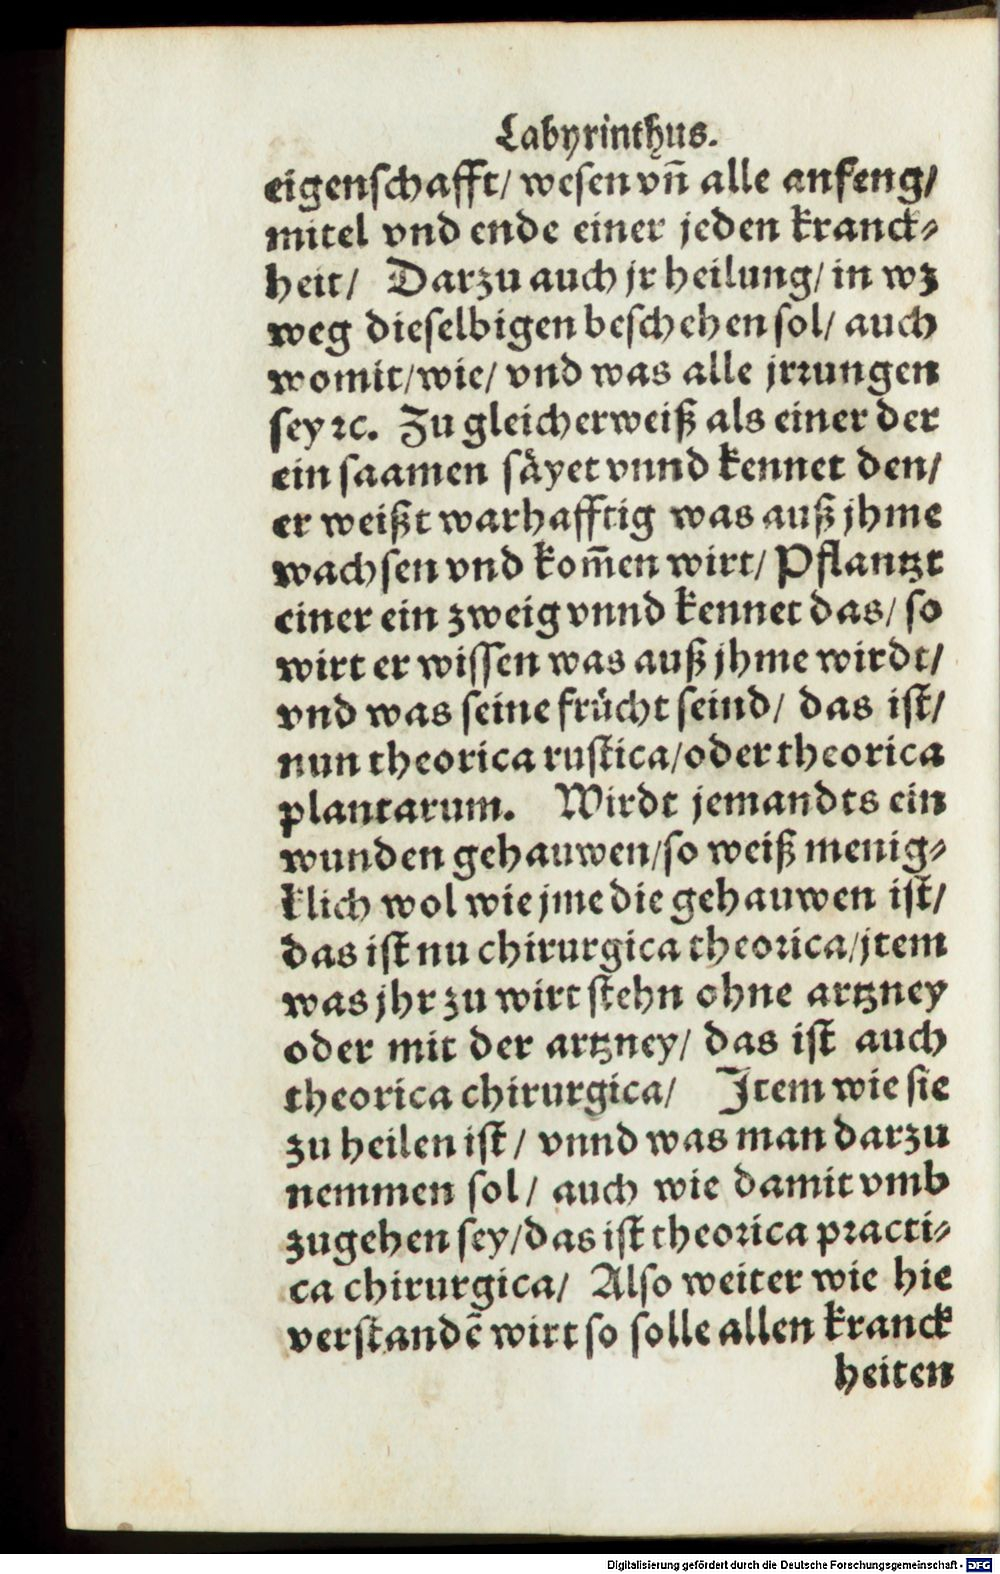 Labyrinthus.
eigenschafft/ wesen vn̄ alle anfeng/
mitel vnd ende einer jeden kranck⸗
heit/ Darzu auch jr heilung/ in wz
weg dieselbigen beschehen sol/ auch
womit/wie/ vnd was alle jrrungen
sey ꝛc. Zu gleicherweiß als einer der
ein saamen sâyet vnnd kennet den/
er weißt warhafftig was auß jhme
wachsen vnd kom̄en wirt/ Pflantzt
einer ein zweig vnnd kennet das/ so
wirt er wissen was auß jhme wirdt/
vnd was seine frücht seind/ das ist/
nun theorica rustica/oder theorica
plantarum. Wirdt jemandts ein
wunden gehauwen/so weiß menig⸗
klich wol wie jme die gehauwen ist/
das ist nu chirurgica theorica/jtem
was jhr zu wirt stehn ohne artzney
oder mit der artzney/ das ist auch
theorica chirurgica/ Item wie sie
zu heilen ist/ vnnd was man darzu
nemmen sol/ auch wie damit vmb
zugehen sey/das ist theorica practi⸗
ca chirurgica/ Also weiter wie hie
verstandē wirt so solle allen kranck
heiten
Digitalisierung gefördert durch die Deutsche Forschungsgemeinschaft - DFG